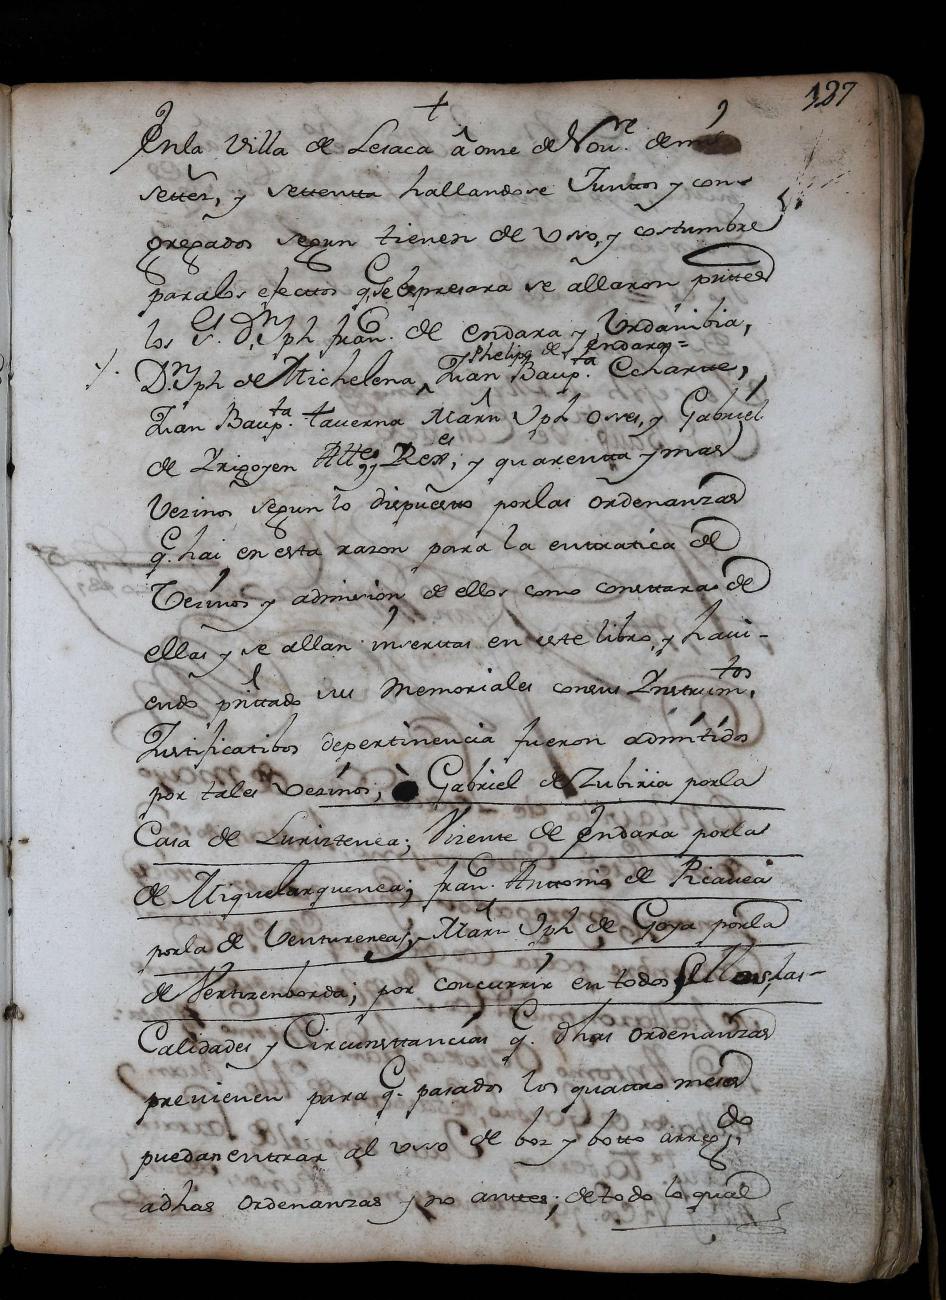 127
+
Enla Villa de Lesaca â onse de Nov.re de mil
settez.s y settentta hallandose Junttos y con=
gregados segun tienen de vsso, y costumbre
paralos efectos q. se êxpresara se allaron pnttes
los S.s D.n Jph fran.co de endara y Vrdanibia,
Phelipe de Endara, =
D.n Jph de Michelena, Juan Baup.ta Echartte,
Juan Baup.ta taverna Martn Jph Osses, y Gabriel
de Yrigoyen Alttes y Rexes, y quarentta y mas
Vezinos segun lo dispuestto por las ôrdenanzas
q. hai en esta razon para la enttratica de
Vezinos y admision de ellos como consttara de
ellas y se allan insertas en este libro, y havi-
endo pnttado sus Memoriales consus Ynstrum.tos
Justificatibos depertinencia fueron admitidos
por tales Vezinos, à Gabriel de Zubiria porla
Casa de Luriztenea; Vizente de Endara porla
de Miquelarguenea; fran.co Anttonio de Picavea
porla de Venturenea; y Martn Jph de Goya porla
de Bertizenborda; por concurrir en todos ellos, las-
Calidades y Circunsttancias q. dhas ordenanzas
previenen para q. pasados los quattro meses
puedan enttrar al vsso de boz y botto arreg.do
adhas ordenanzas y no anttes; de todo lo qual